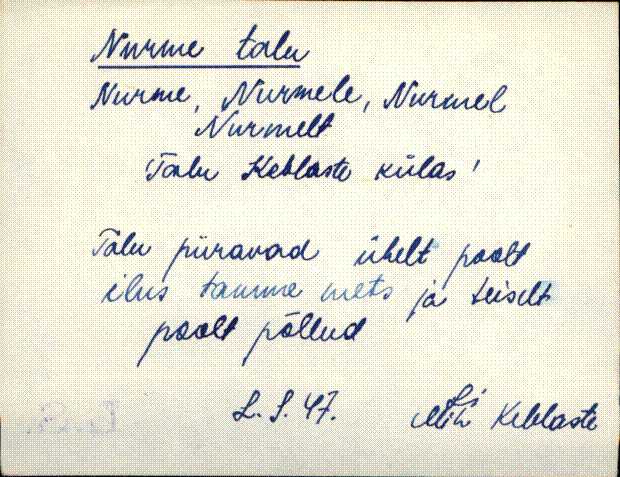 Nurme talu
Nurme, Nurmele, Nurmel
Nurmelt
Talu Keblaste külas!
Talu piiravad ühelt poolt
ilus tamme mets ja teiselt
poolt põllud
L. S. 47. Mih Keblaste